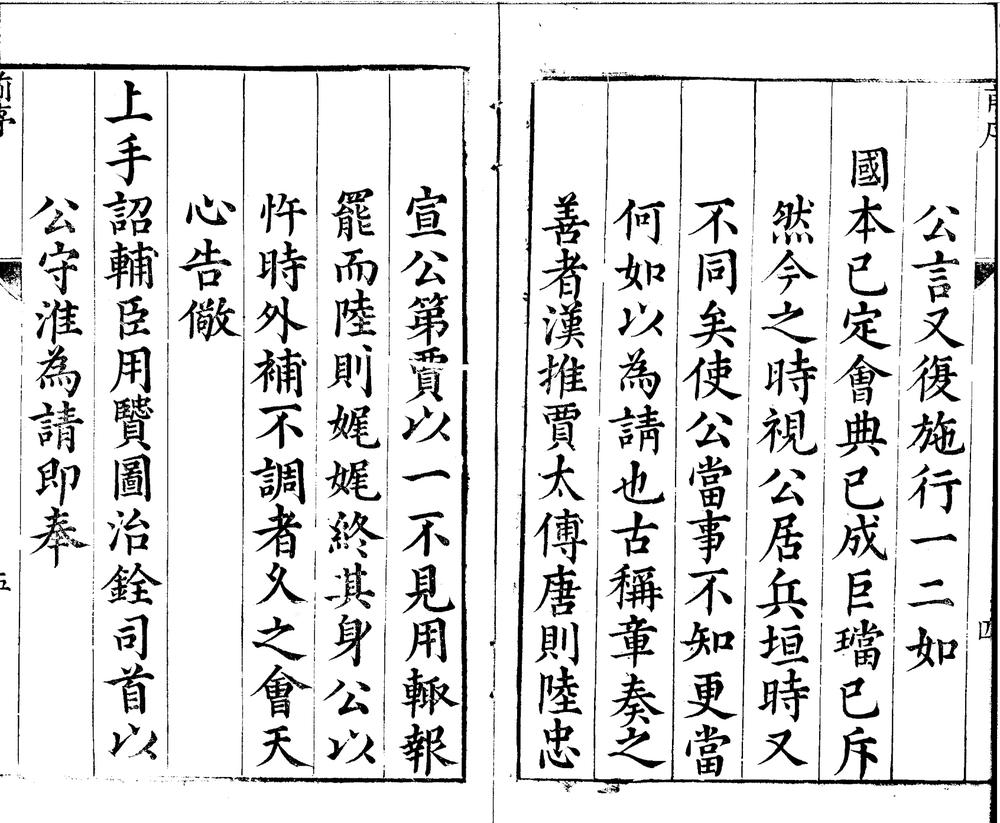 公言又復施行一二如
國本已定會典已成巨璫已斥
然今之時視公居兵垣時又
不同矣使公當事不知更當
何如以為請也古稱章奏之
善者漢推賈太傅唐則陸忠
四
宣公第賈以一不見用輒報
罷而陸則娓娓終其身公以
忤時外補不調者久之會天
心告儆
上手詔輔臣用賢圖治銓司首以
公守淮為請即奉
前序
五